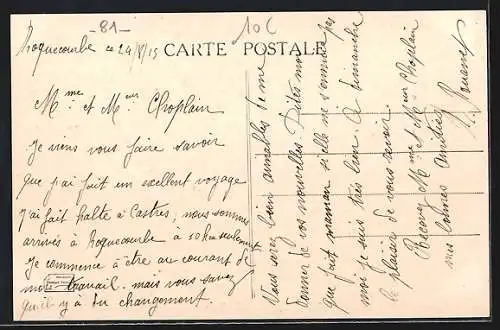 -81-
10C
CARTE POSTALE
Roquecourbe ce 24/V/15
Mme et Meur Choplain
Je viens vous faire savoir
que j'ai fait un excellent voyage
J'ai fait halte à Castres, nous sommes
arrivés à Roquecourbe à 10h seulement
Je commence à être au courant de
mon travail. mais vous savez
qu'il y à du changement.
Vous serez bien aimables de me
donner de vos nouvelles. Dites moi
que fait maman si elle ne s'ennuie pas
moi je suis très bien. A dimanche
le plaisir de vous revoir.
Recevez Mme et Meur Choplain
mes bonnes amitiés